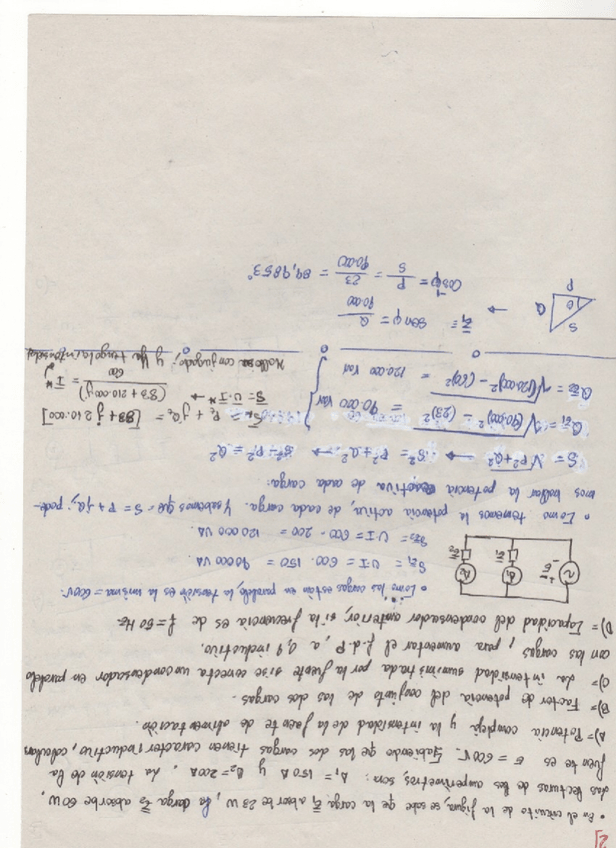 2]
• En el circuito de la figura, se sabe que la carga Z̄₁ absorbe 23 W, la carga Z̄₂ absorbe 60 W,
las lecturas de los amperímetros, son: A₁ = 150 A y A₂ = 200A, La tensión de la
fuente es E = 600 V. Sabiendo que las dos cargas tienen caracter inductivo, calcular:
A)= Potencia compleja y la intensidad de la fuente de alimentación.
B)= Factor de potencia del conjunto de las dos cargas.
C)= La intensidad suministrada por la fuente si se conecta un condensador en paralelo
con las cargas, para aumentar el f.d.P a, 0,9 inductivo.
D)= Capacidad del condensador anterior, si la frecuencia es de f = 50 Hz
• Como las cargas están en paralelo, la tensión es la misma = 600V.
S_Z1 = U·I = 600 · 150 = 90000 VA
S_Z2 = U·I = 600 · 200 = 120000 VA.
• Como tenemos la potencia activa, de cada carga. Y sabemos que S = P + jQ; pode-
mos hallar la potencia reactiva de cada carga.
S = √P²+Q² → S² = P² + Q² → S² - P² = Q²
Q_Z1 = √(90.000)² - (23)² = 90.000 Var
Q_Z2 = √(120.000)² - (60)² = 120.000 Var
= P_t + jQ_t = [83 + j 210.000]
S̄ = U·I* → (83 + 210.000j) / 600 = I*
Hallo su conjugado; y ya tengo la intensidad
S Q P
Z̄₁ = → sen φ = Q / 90.000
cos⁻¹ φ = P / S = 23 / 90.000 = 89,9853°